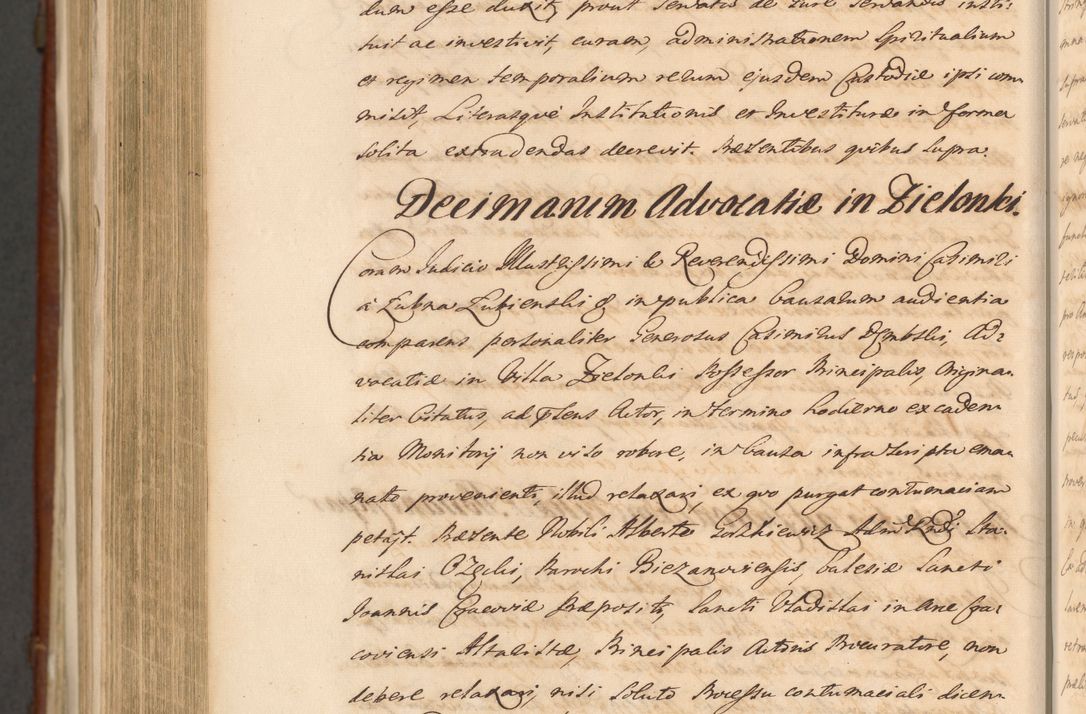 dum esse duxit, prout servatis de Jure servandis insti:
tuit ac investivit, curam, administrationem Spiritualium
et regimen temporalium rerum ejusdem Custodiæ ipsi com=
misit, Literasque Institutionis et Investituræ in forma
solita extradendas decrevit. Præsentibus quibus supra.
Decimarum Advocatiæ in Zielonki.
Coram Judicio Illustrissimi & Reverendissimi Domini Casimiri
à Łubna Łubienski & in publica Causarum audientia
comparens personaliter Generosus Casimirus Dembski, Ad=
vocatiæ in Villa Zielonki Possessor Principalis, Origina=
liter Citatus, ad plens Actor, in termino hodierno ex caden=
tia Monitorij non viso robore, in Causa infra scripta ema=
nato provenienti, illud relaxari, ex quo purgat contumaciam
petijt. Præsente Nobili Alberto Goszkiewicz Adm Rndi Sta=
nislai Czechi, Parochi Biezanoviensis, Ecclesiæ Sancti
Joannis Cracoviæ Præpositi, Sancti Vladislai in Arce Cra=
coviensi Altaristæ, Principalis Actoris Procuratore, non
debere relaxari, nisi soluto Processu contumaciali dicen=